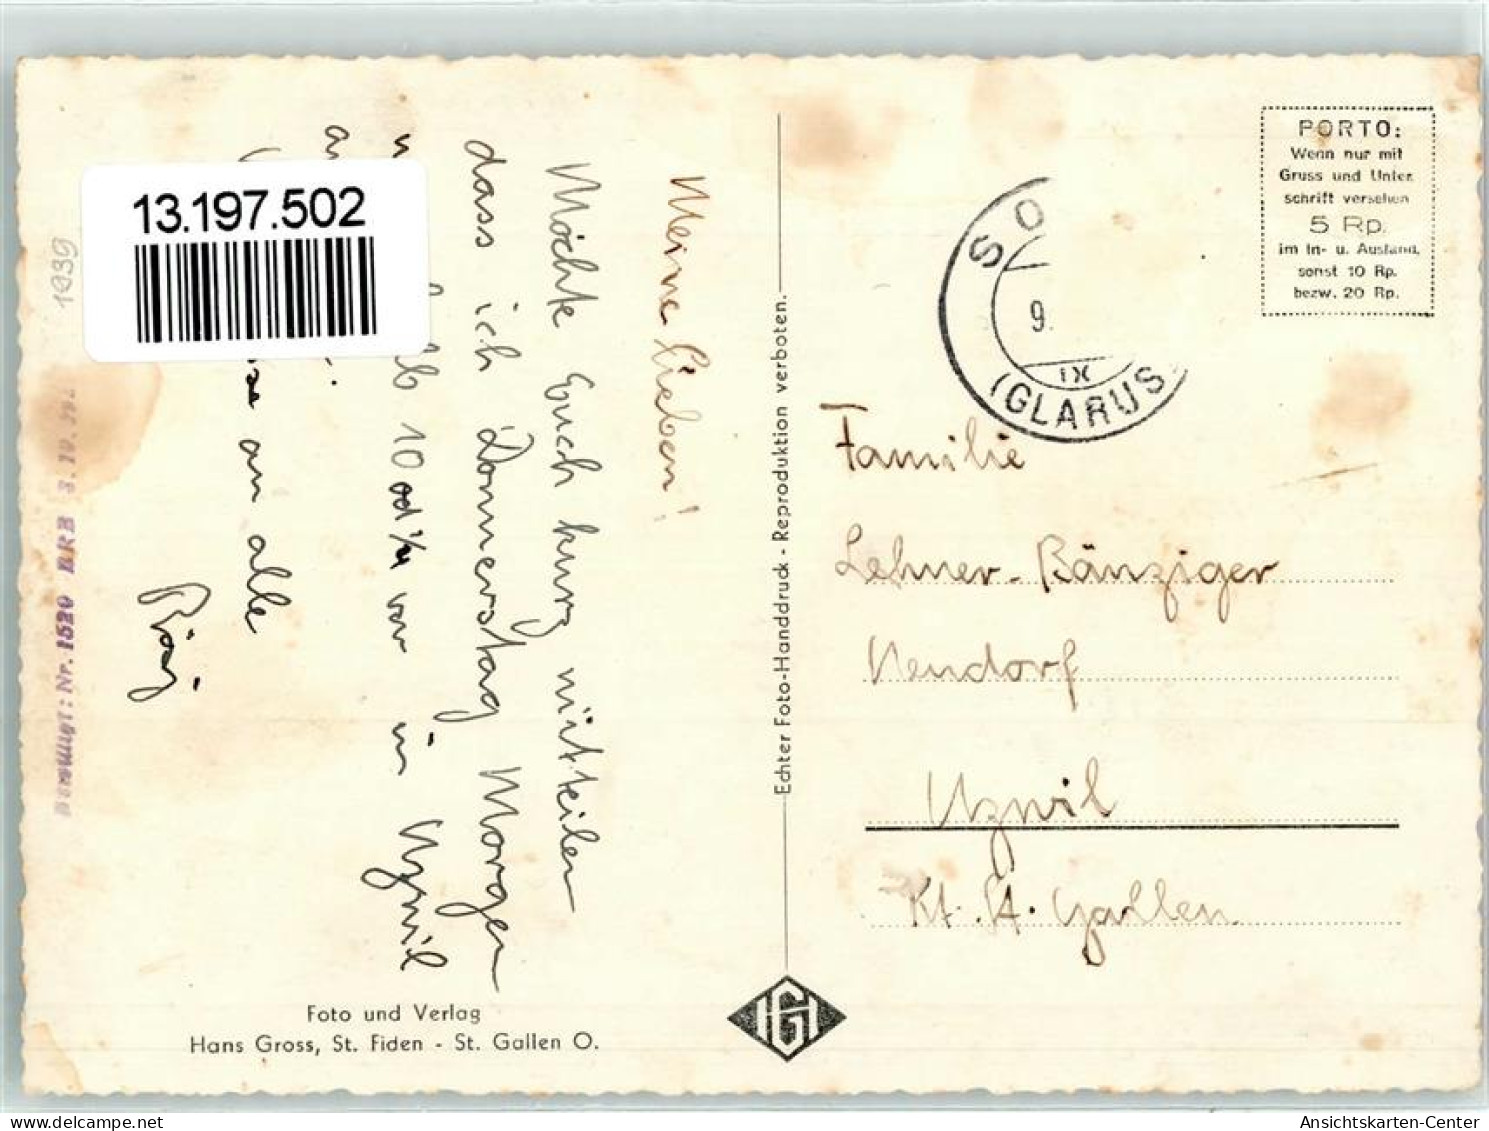 13.197.502
1939
Bewilligt: Nr. 1520 BRB 3.10.
Meine Lieben!
Möchte Euch kurz mitteilen
dass ich Donnerstag Morgen
10 od ¼ vor in Uzwil
an alle
Rösj
Foto und Verlag
Hans Gross, St. Fiden - St. Gallen O.
Echter Foto-Handdruck - Reproduktion verboten.
PORTO:
Wenn nur mit
Gruss und Unter
schrift versehen
5 Rp.
im In- u. Ausland,
sonst 10 Rp.
bezw. 20 Rp.
9.
IX
(GLARUS
Familie
Lehner-Bänziger
Neudorf
Uzwil
Kt. St. Gallen
oldthing.de
Ansichtskarten-Center